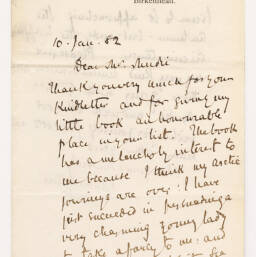 Birkenhead.
10. Jan. 82
Dear Mr Mudi
Thank you very much for your
kind letter and for giving my
little book an honourable
place in your list. The book
has a melancholy interest to
me because I think my arctic
journeys are over: I have
just succeeded in persuading a
very charming young lady
to take a fancy to me, and